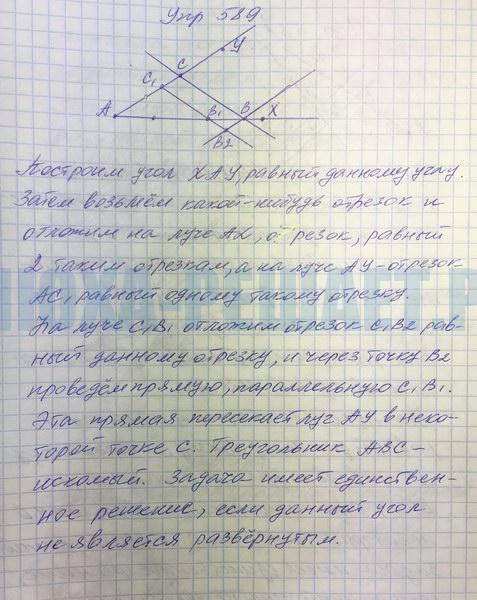 Упр 589
У
С
С₁
А
В₁
В
Х
В2
Построим угол ХАУ, равный данному углу.
Затем возьмём какой-нибудь отрезок и
отложим на луче АХ, отрезок, равный
2 таким отрезкам, а на луче АУ-отрезок
АС, равный одному такому отрезку.
На луче С₁В₁ отложим отрезок С₁В2 рав-
ный данному отрезку, и через точку В2
проведём прямую, параллельную С₁В₁.
Эта прямая пересекает луч АУ в неко-
торой точке С. Треугольник АВС-
искомый. Задача имеет единствен-
ное решение, если данный угол
не является развёрнутым.